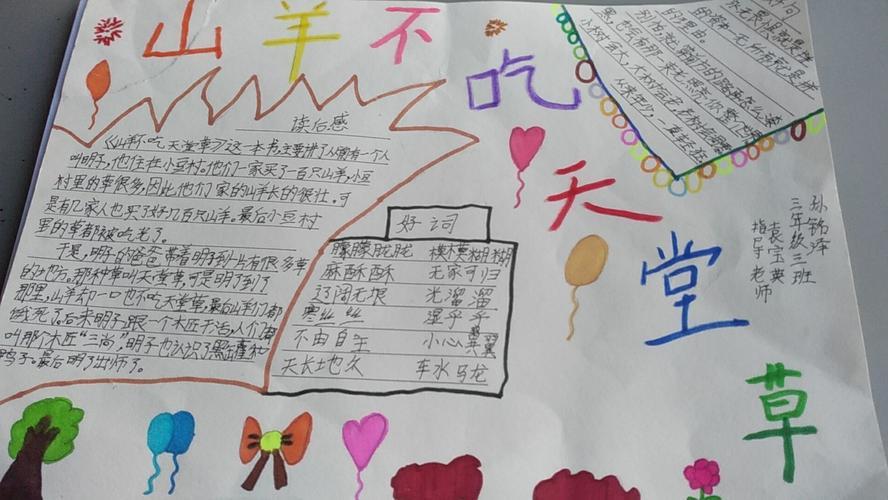 山羊不吃天堂草
读后感
《山羊不吃天堂草》这一本书主要讲了从前有一个人
叫明子,他住在小豆村。他们一家买了一百只山羊,小豆
村里的草很多,因此他们家的山羊长的很壮。可
是有几家人也买了好几百只山羊。最后小豆村
里的草都被吃光了。
于是,明子的爸爸带着明子到一片有很多草
的地方。那种草叫天堂草,可是明子到了
那里,山羊却一口也不吃天堂草,最后山羊们都
饿死了后来明子跟一个木匠干活,人们都
叫那个木匠“三和尚”明子也认识了黑罐和
鸭子。最后明子出师了。
好词
朦朦胧胧 模模糊糊
麻酥酥 无家可归
辽阔无垠 光溜溜
寒丝丝 湿乎乎
不由自主 小心翼翼
天长地久 车水马龙
孙锦泽
三年级三班
指导老师
袁宝英